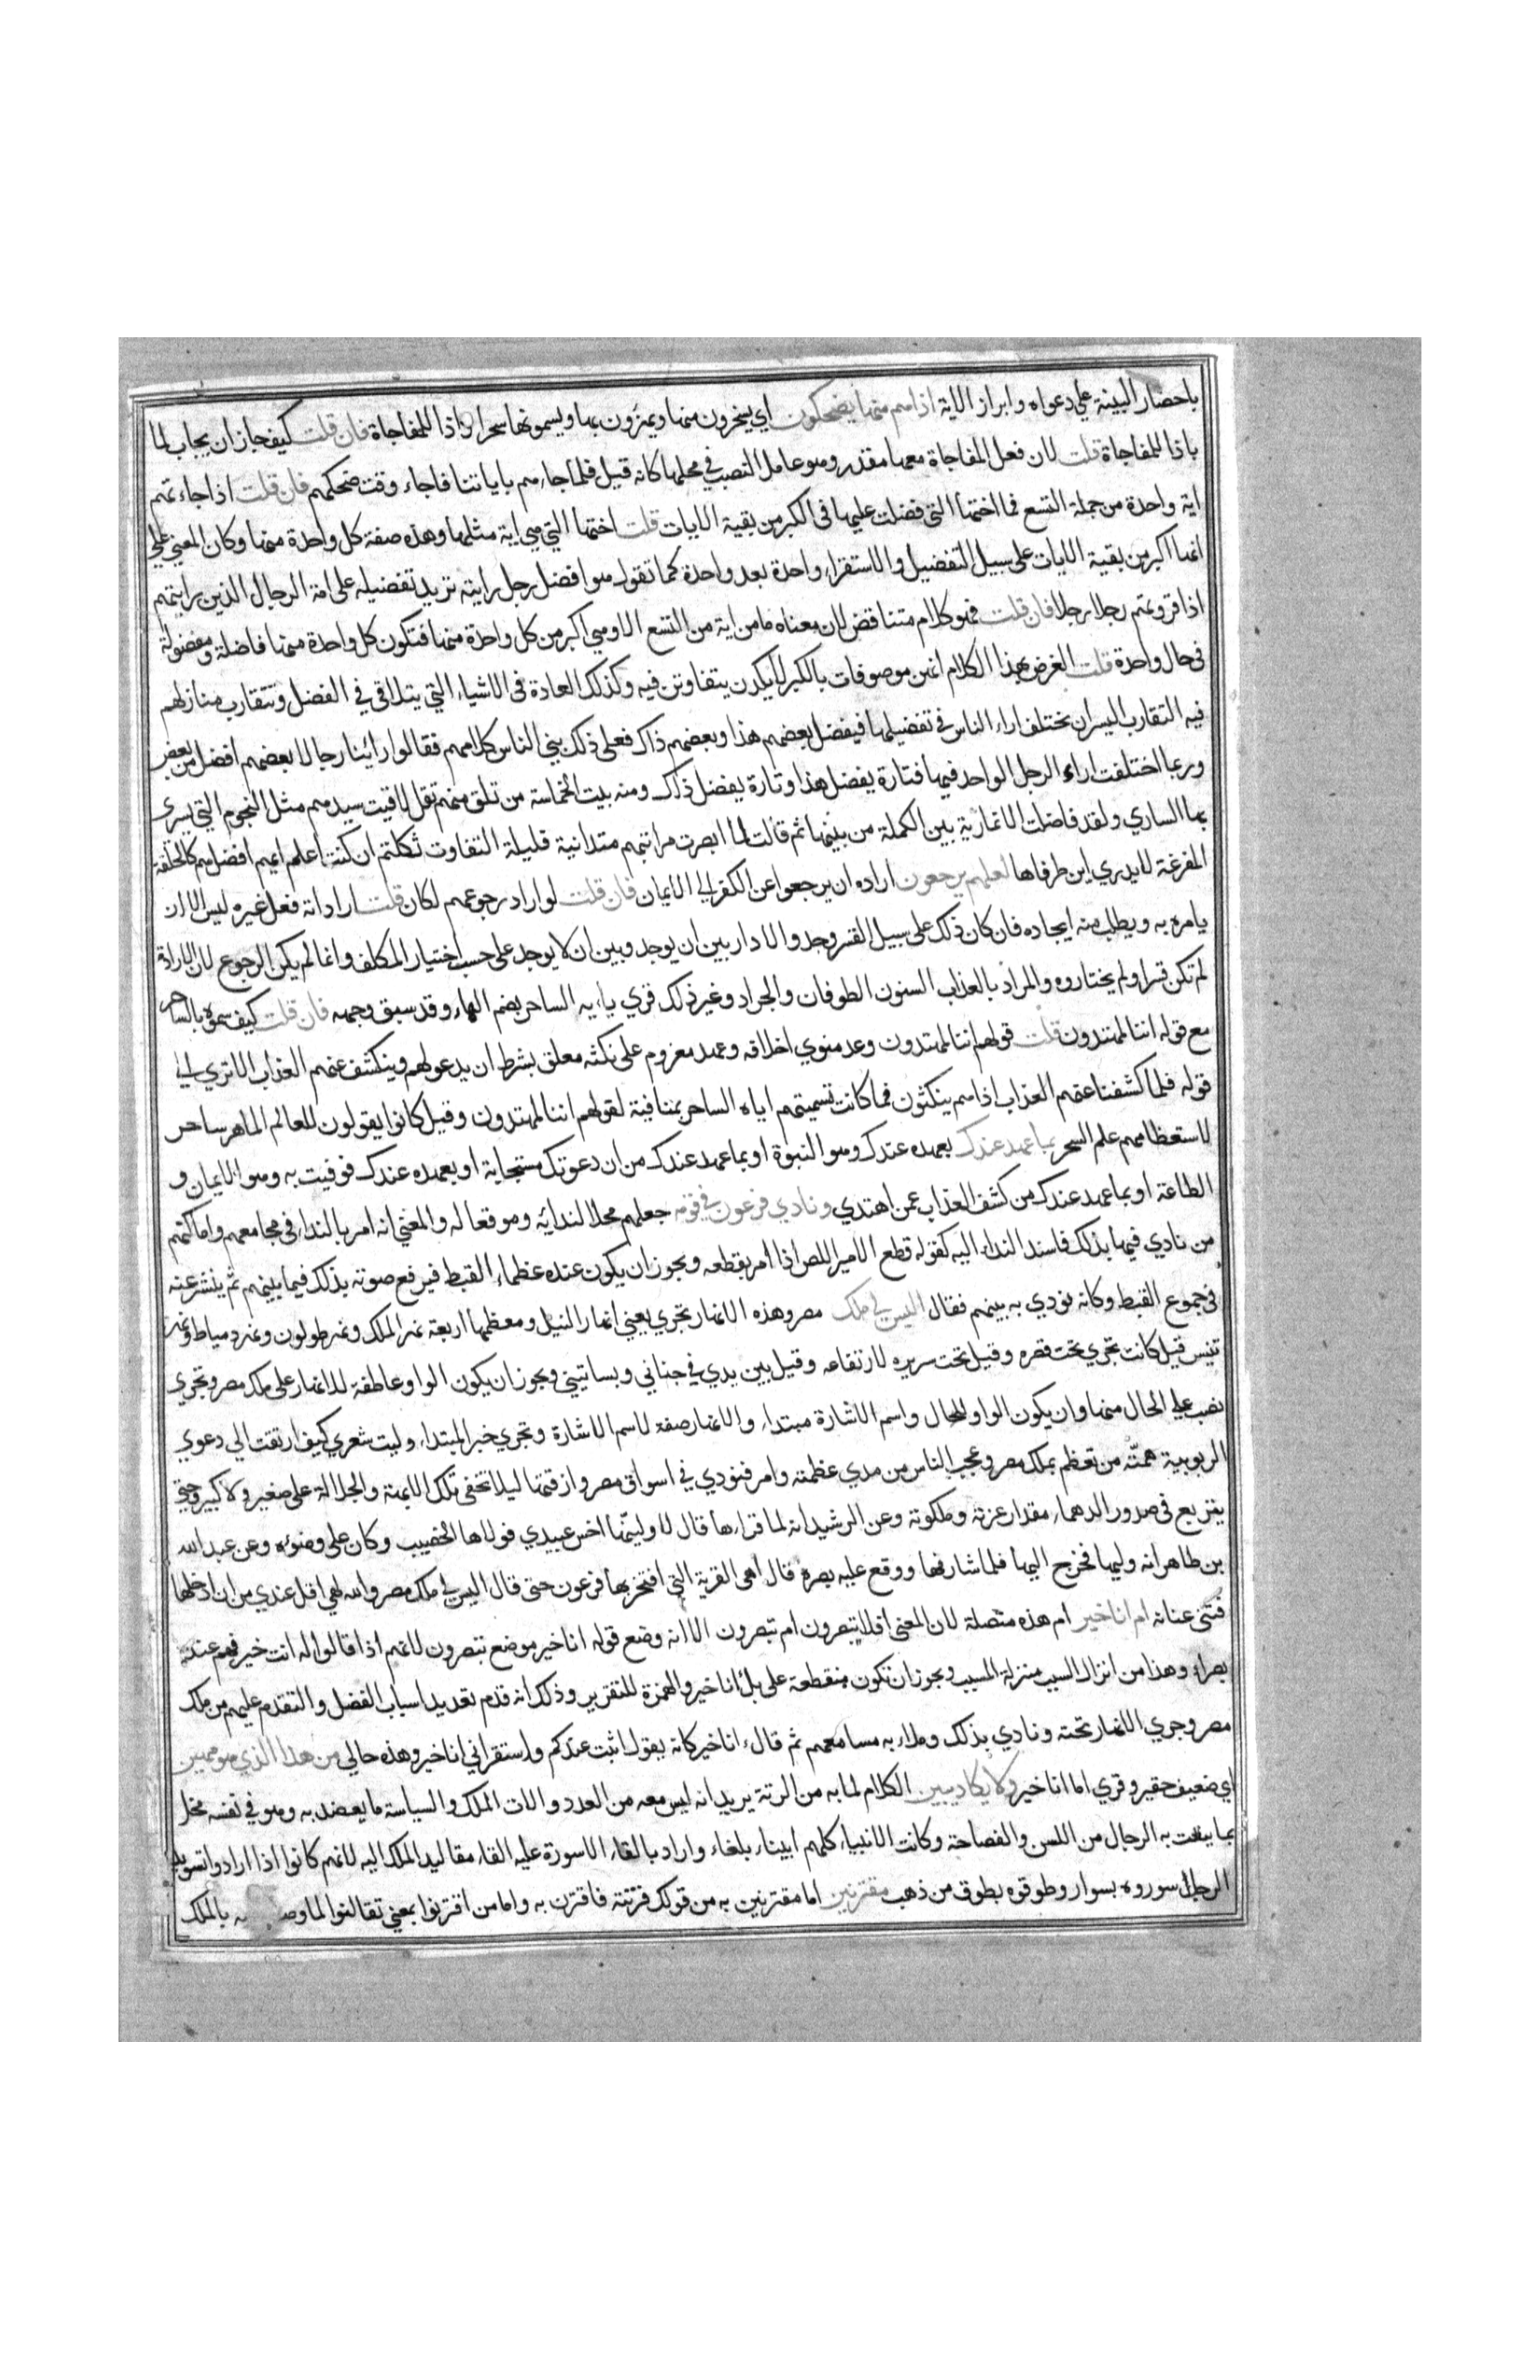 باحضار البينة علي دعواه وابراز الاية اذا هم منها يضحكون اي يسخرون منها ويهزؤن بها ويسمونها سحرا واذا للمفاجاة فان قلت كيف جاز ان يجاب لما
باذا المفاجاة قلت لان فعل المفاجاة معها مقدر وهو عامل النصب في محلها كانه قيل فلما جاءهم باياتنا فاجاء وقت ضحكهم فان قلت اذا جاءتهم
اية واحدة من جملة التسع فما اختها التي فضلت عليها في الكبر من بقية الايات قلت اختها التي هي اية مثلها وهذه صفة كل واحدة منها وكان المعني علي
انها اكبر من بقية الايات علي سبيل التفضيل والاستقراء واحدة بعد واحدة كما تقول هو افضل رجل رايته تريد تفضيله علي امة الرجال الذين رايتهم
اذا قروتهم رجلا رجلا فان قلت فهو كلام متناقض لان معناه ما من اية من التسع الا وهي اكبر من كل واحدة منها فتكون كل واحدة منها فاضلة ومفضولة
في حال واحدة قلت الغرض بهذا الكلام انهن موصوفات بالكبر لا يكدن يتفاوتن فيه وكذلك العادة في الاشياء التي يتلاقي في الفضل وتتقارب منازلهم
فيه التقارب اليسير ان تختلف اراء الناس في تفضيلها فيفضل بعضهم هذا وبعضهم ذاك فعلي ذلك بني الناس كلامهم فقالوا رائنا رجالا بعضهم افضل من بعض
وربما اختلفت اراء الرجل الواحد فيها فتارة يفضل هذا وتارة يفضل ذاك ومنه بيت الحماسة من تلق منهم تقل لاقيت سيدهم مثل النجوم التي يسري
بها الساري ولقد فاضلت الانمارية بين الكملة من بينها ثم قالت لما ابصرت مراتبهم متدانية قليلة التفاوت ثكلتهم ان كنت اعلم ايهم افضل هم كالحلقة
المفرغة لا يدري اين طرفاها لعلهم يرجعون اراده ان يرجعوا عن الكفر الي الايمان فان قلت لو اراد رجوعهم لكان قلت ارادته فعل غيره ليس الا ان
يامره به ويطلب منه ايجاده فان كان ذلك علي سبيل القسر وجد والا دار بين ان يوجد وبين ان لا يوجد علي حسب اختيار المكلف وانما لم يكن الرجوع لان الارادة
لم تكن قسرا ولم يختاروه والمراد بالعذاب السنون الطوفان والجراد وغير ذلك قري يا ايه الساحر بضم الهاء وقد سبق وجهه فان قلت كيف سموه بالساحر
مع قوله اننا لمهتدون قلت قولهم اننا لمهتدون وعد منوي اخلافه وعهد معزوم علي نكثه معلق بشرط ان يدعو لهم وينكشف عنهم العذاب الا تري الي
قوله فلما كشفنا عنهم العذاب اذا هم ينكثون فما كانت تسميتهم اياه الساحر بمنافية لقولهم اننا لمهتدون وقيل كانوا يقولون للعالم الماهر ساحر
لاستعظامهم علم السحر بما عهد عندك بعهده عندك وهو النبوة او بما عهد عندك من ان دعوتك مستجابة او بعهده عندك فوفيت به وهو الايمان و
الطاعة او بما عهد عندك من كشف العذاب عمن اهتدي ونادي فرعون في قومه جعلهم محلا لندائه وموقعا له والمعني انه امر بالنداء في مجامعهم واماكنهم
من نادي فيها بذلك فاسند النداء اليه كقوله قطع الامير اللص اذا امر بقطعه ويجوز ان يكون عنده عظماء القبط فيرفع صوته بذلك فيما بينهم ثم ينتشر عنه
في جموع القبط وكانه نودي به بينهم فقال اليس لي ملك مصر وهذه الانهار تجري يعني انهار النيل ومعظمها اربعة نهر الملك ونهر طولون ونهر دمياط ونهر
تنيس قيل كانت تجري تحت قصره وقيل تحت سريره لارتفاعه وقيل بين يدي في جناني وبساتيني ويجوز ان يكون الواو عاطفة للانهار علي ملك مصر وتجري
نصب علي الحال منها وان يكون الواو للحال واسم الاشارة مبتداء والانهار صفة لاسم الاشارة وتجري خبر المبتداء وليت شعري كيف ارتقت الي دعوي
الربوبية همته من تعظم بملك مصر وعجب الناس من مدي عظمته وامر فنودي في اسواق مصر وازقتها ليلا تخفي تلك الابهة والجلالة علي صغير ولا كبير وحتي
يتربع في صدور الدهماء مقدار عزته وملكوته وعن الرشيد انه لما قراءها قال لاولينها اخس عبيدي فولاها الخصيب وكان علي وضوئه وعن عبد الله
بن طاهر انه وليها فخرج اليها فلما شارفها ووقع عليه بصره قال اهي القرية التي افتخر بها فرعون حتي قال اليس لي ملك مصر والله لهي اقل عندي من ان ادخلها
فثني عنانه ام انا خير ام هذه متصلة لان المعني افلا تبصرون ام تبصرون الا انه وضع قوله انا خير موضع تبصرون لانهم اذا قالوا له انت خير فهم عنده
بصراء وهذا من انزال السبب منزلة المسبب ويجوز ان تكون منقطعة علي بل اانا خير والهمزة للتقرير وذلك انه قدم تعديد اسباب الفضل والتقدم عليهم من ملك
مصر وجري الانهار تحته ونادي بذلك وملاء به مسامعهم ثم قال ء انا خير كانه يقول اثبت عندكم واستقر اني انا خير وهذه حالي من هذا الذي هو مهين
اي ضعيف حقير وقري اما انا خير ولا يكاد يبين الكلام لما به من الرتة يريد انه ليس معه من العدد والات الملك والسياسة ما يعضد به وهو في نفسه مخل
بما ينعت به الرجال من اللسن والفصاحة وكانت الانبياء كلهم ابيناء بلغاء واراد بالقاء الاسورة عليه القاء مقاليد الملك اليه لانهم كانوا اذا ارادوا تسويد
الرجل سوروه بسوار وطوقوه بطوق من ذهب مقترنين اما مقترنين به من قولك قرنته فاقترن به واما من اقترنوا بمعني تقارنوا لما به بالملك